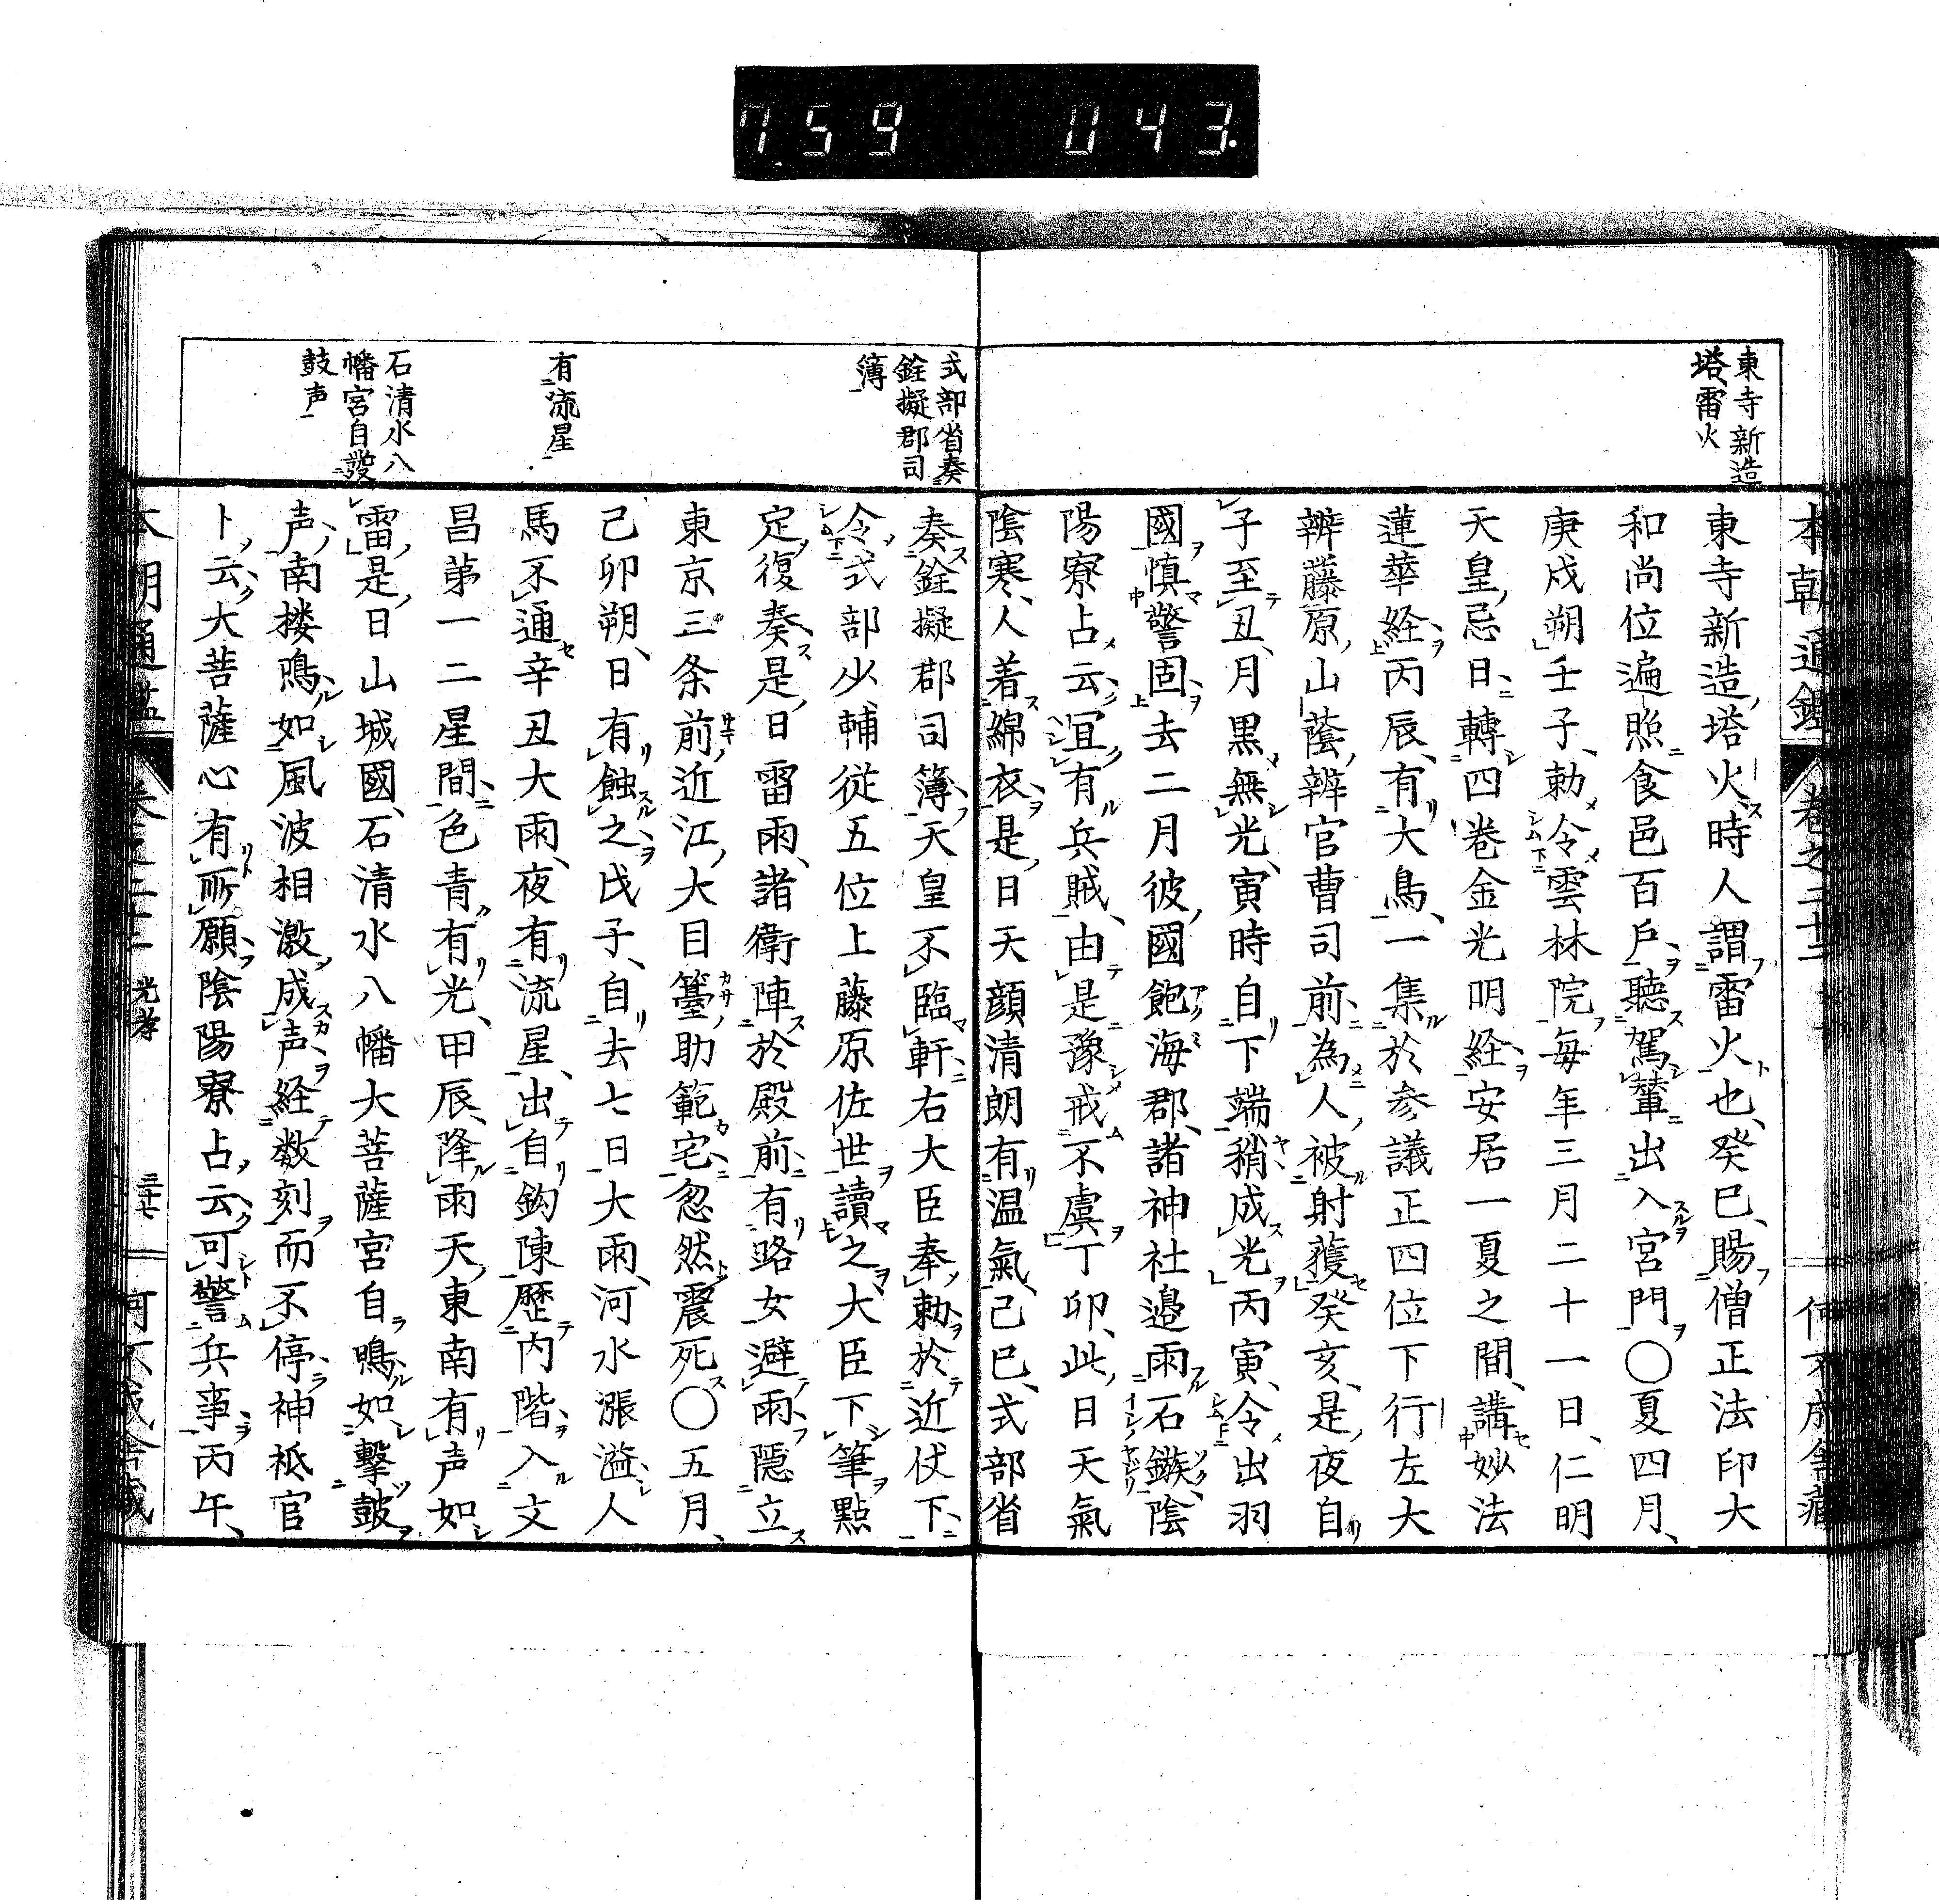 759 043
本朝通鑑 卷之二十二
何不成舍藏
東寺新造
塔雷火
東寺新造塔火時人謂雷火也癸巳賜僧正法印大
和尚位遍照食邑百戶聽駕輦出入宮門○夏四月
庚戌朔壬子勅令雲林院每年三月二十一日仁明
天皇忌日轉四卷金光明経安居一夏之間講妙法
蓮華経丙辰有大鳥一集於参議正四位下行左大
辨藤原山蔭辨官曹司前為人被射蒦癸亥是夜自
子至丑月黒無光寅時自下端稍成光丙寅令出羽
國慎警固去二月彼國飽海郡諸神社邉雨石鏃陰
陽寮占云冝有兵賊由是豫戒不虞丁卯此日天氣
陰寒人着綿衣是日天顔清朗有温氣己巳式部省
式部省奏
銓擬郡司
簿
有流星
石清水八
幡宮自發
鼓声
奏銓擬郡司簿天皇不臨軒右大臣奉勅於近仗下
令式部少輔従五位上藤原佐世讀之大臣下筆點
定復奏是日雷雨諸衛陣於殿前有路女避雨隠立
東京三条前近江大目䑓助範宅忽然震死○五月
己卯朔日有蝕之戊子自去七日大雨河水漲溢人
馬不通辛丑大雨夜有流星出自鈎陳歴内階入文
昌第一二星間色青有光甲辰降雨天東南有声如
雷是日山城國石清水八幡大菩薩宮自鳴如撃鼓
声南楼鳴如風波相激成声経数刻而不停神祇官
卜云大菩薩心有所願陰陽寮占云可警兵事丙午
本朝通鑑 卷之二十二 光孝 二十七 何不成舍藏